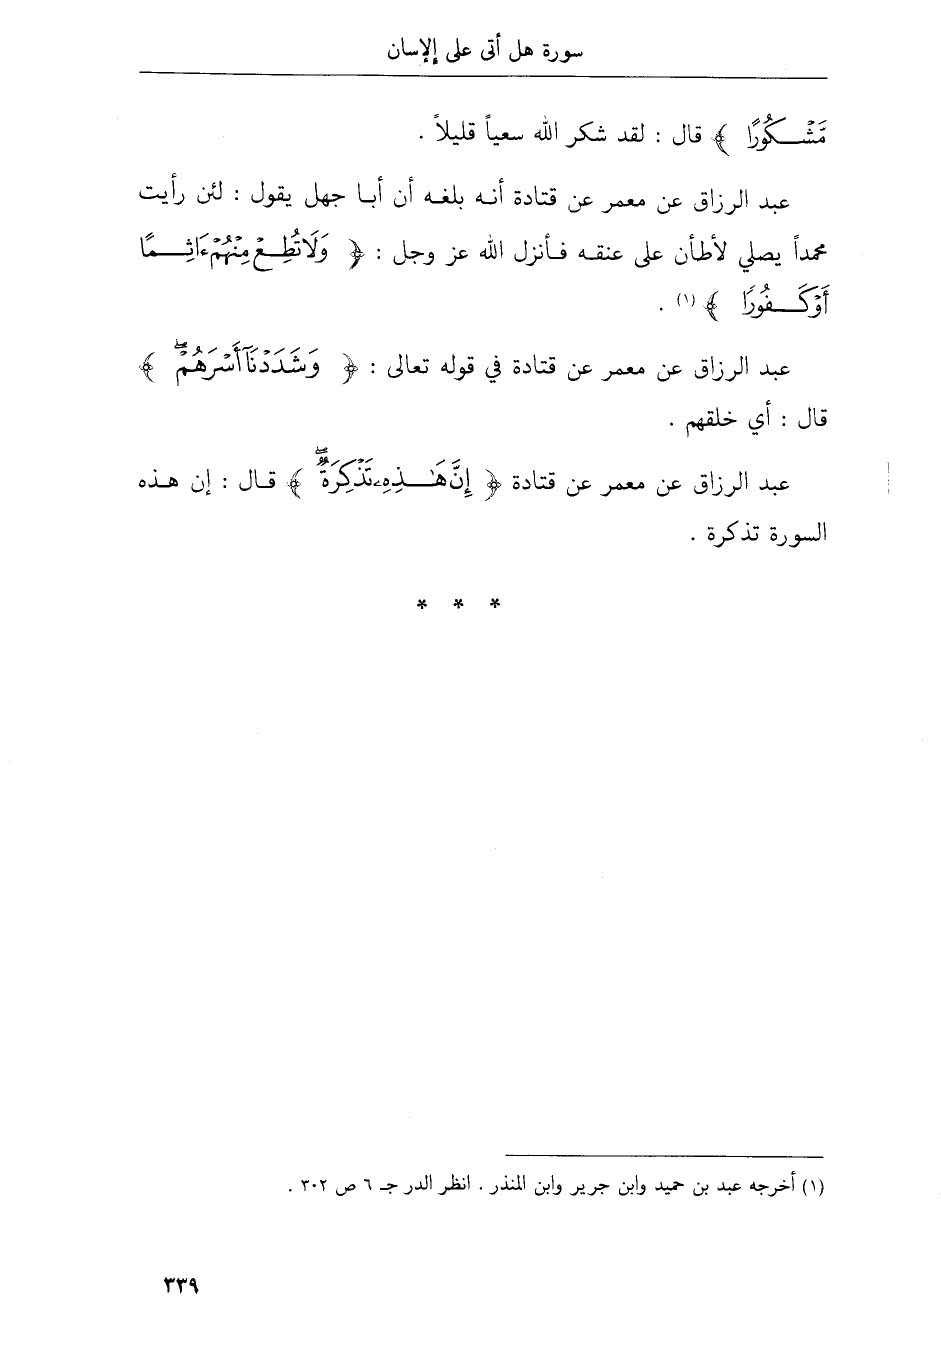 سورة هل أتى على إلإسان
مَّشْكُورًا ﴾ قال : لقد شكر الله سعياً قليلاً .
عبد الرزاق عن معمر عن قتادة أنه بلغه أن أبا جهل يقول : لئن رأيت
محمداً يصلي لأطأن على عنقه فأنزل الله عز وجل : ﴿ وَلَا تُطِعْ مِنْهُمْ ءَاثِمًا
أَوْ كَفُورًا ﴾ (١) .
عبد الرزاق عن معمر عن قتادة في قوله تعالى : ﴿ وَشَدَدْنَآ أَسْرَهُمْ ۖ ﴾
قال : أي خلقهم .
عبد الرزاق عن معمر عن قتادة ﴿ إِنَّ هَٰذِهِۦ تَذْكِرَةٌ ۖ ﴾ قال : إن هذه
السورة تذكرة .
* * *
(١) أخرجه عبد بن حميد وابن جرير وابن المنذر . انظر الدر جـ ٦ ص ٣٠٢ .
٣٣٩